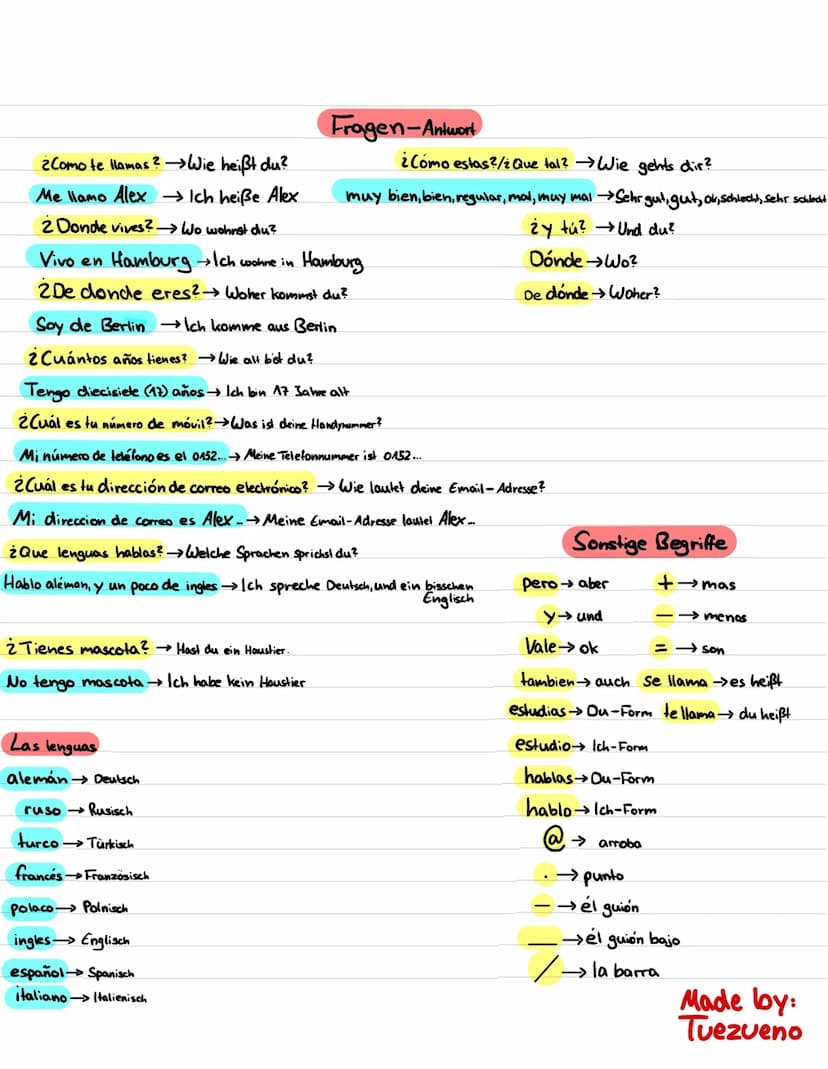 Fragen-Antwort
¿Como te llamas? → Wie heißt du?
Me llamo Alex → Ich heiße Alex
¿Donde vives? → Wo wohnst du?
Vivo en Hamburg → Ich wohne in Hamburg
¿De donde eres? → Woher kommst du?
Soy de Berlin → Ich komme aus Berlin
¿Cuántos años tienes? → Wie alt bist du?
Tengo diecisiete (17) años → Ich bin 17 Jahre alt
¿Cuál es tu número de móvil? → Was ist deine Handynummer?
Mi número de teléfono es el 0152... → Meine Telefonnummer ist 0152...
¿Cuál es tu dirección de correo electrónico? → Wie lautet deine Email-Adresse?
Mi direccion de correo es Alex... → Meine Email-Adresse lautet Alex...
¿Que lenguas hablas? → Welche Sprachen sprichst du?
Hablo aléman, y un poco de ingles → Ich spreche Deutsch, und ein bisschen
Englisch
¿Tienes mascota? → Hast du ein Haustier.
No tengo mascota → Ich habe kein Haustier
¿Cómo estas?/¿Que tal? → Wie gehts dir?
muy bien, bien, regular, mal, muy mal → Sehr gut, gut, ok, schlecht, sehr schlecht
¿y tú? → Und du?
Dónde → Wo?
De dónde → Woher?
Las lenguas
alemán → Deutsch
ruso → Russisch
turco → Türkisch
francés → Französisch
polaco → Polnisch
ingles → Englisch
español → Spanisch
italiano → Italienisch
Sonstige Begriffe
pero → aber
+ → mas
y → und
— → menos
Vale → ok
= → son
tambien → auch
se llama → es heißt
estudias → Du-Form
te llama → du heißt
estudio → Ich-Form
hablas → Du-Form
hablo → Ich-Form
@ → arroba
. → punto
– → él guión
__ → él guión bajo
/ → la barra
Made by:
Tuezueno